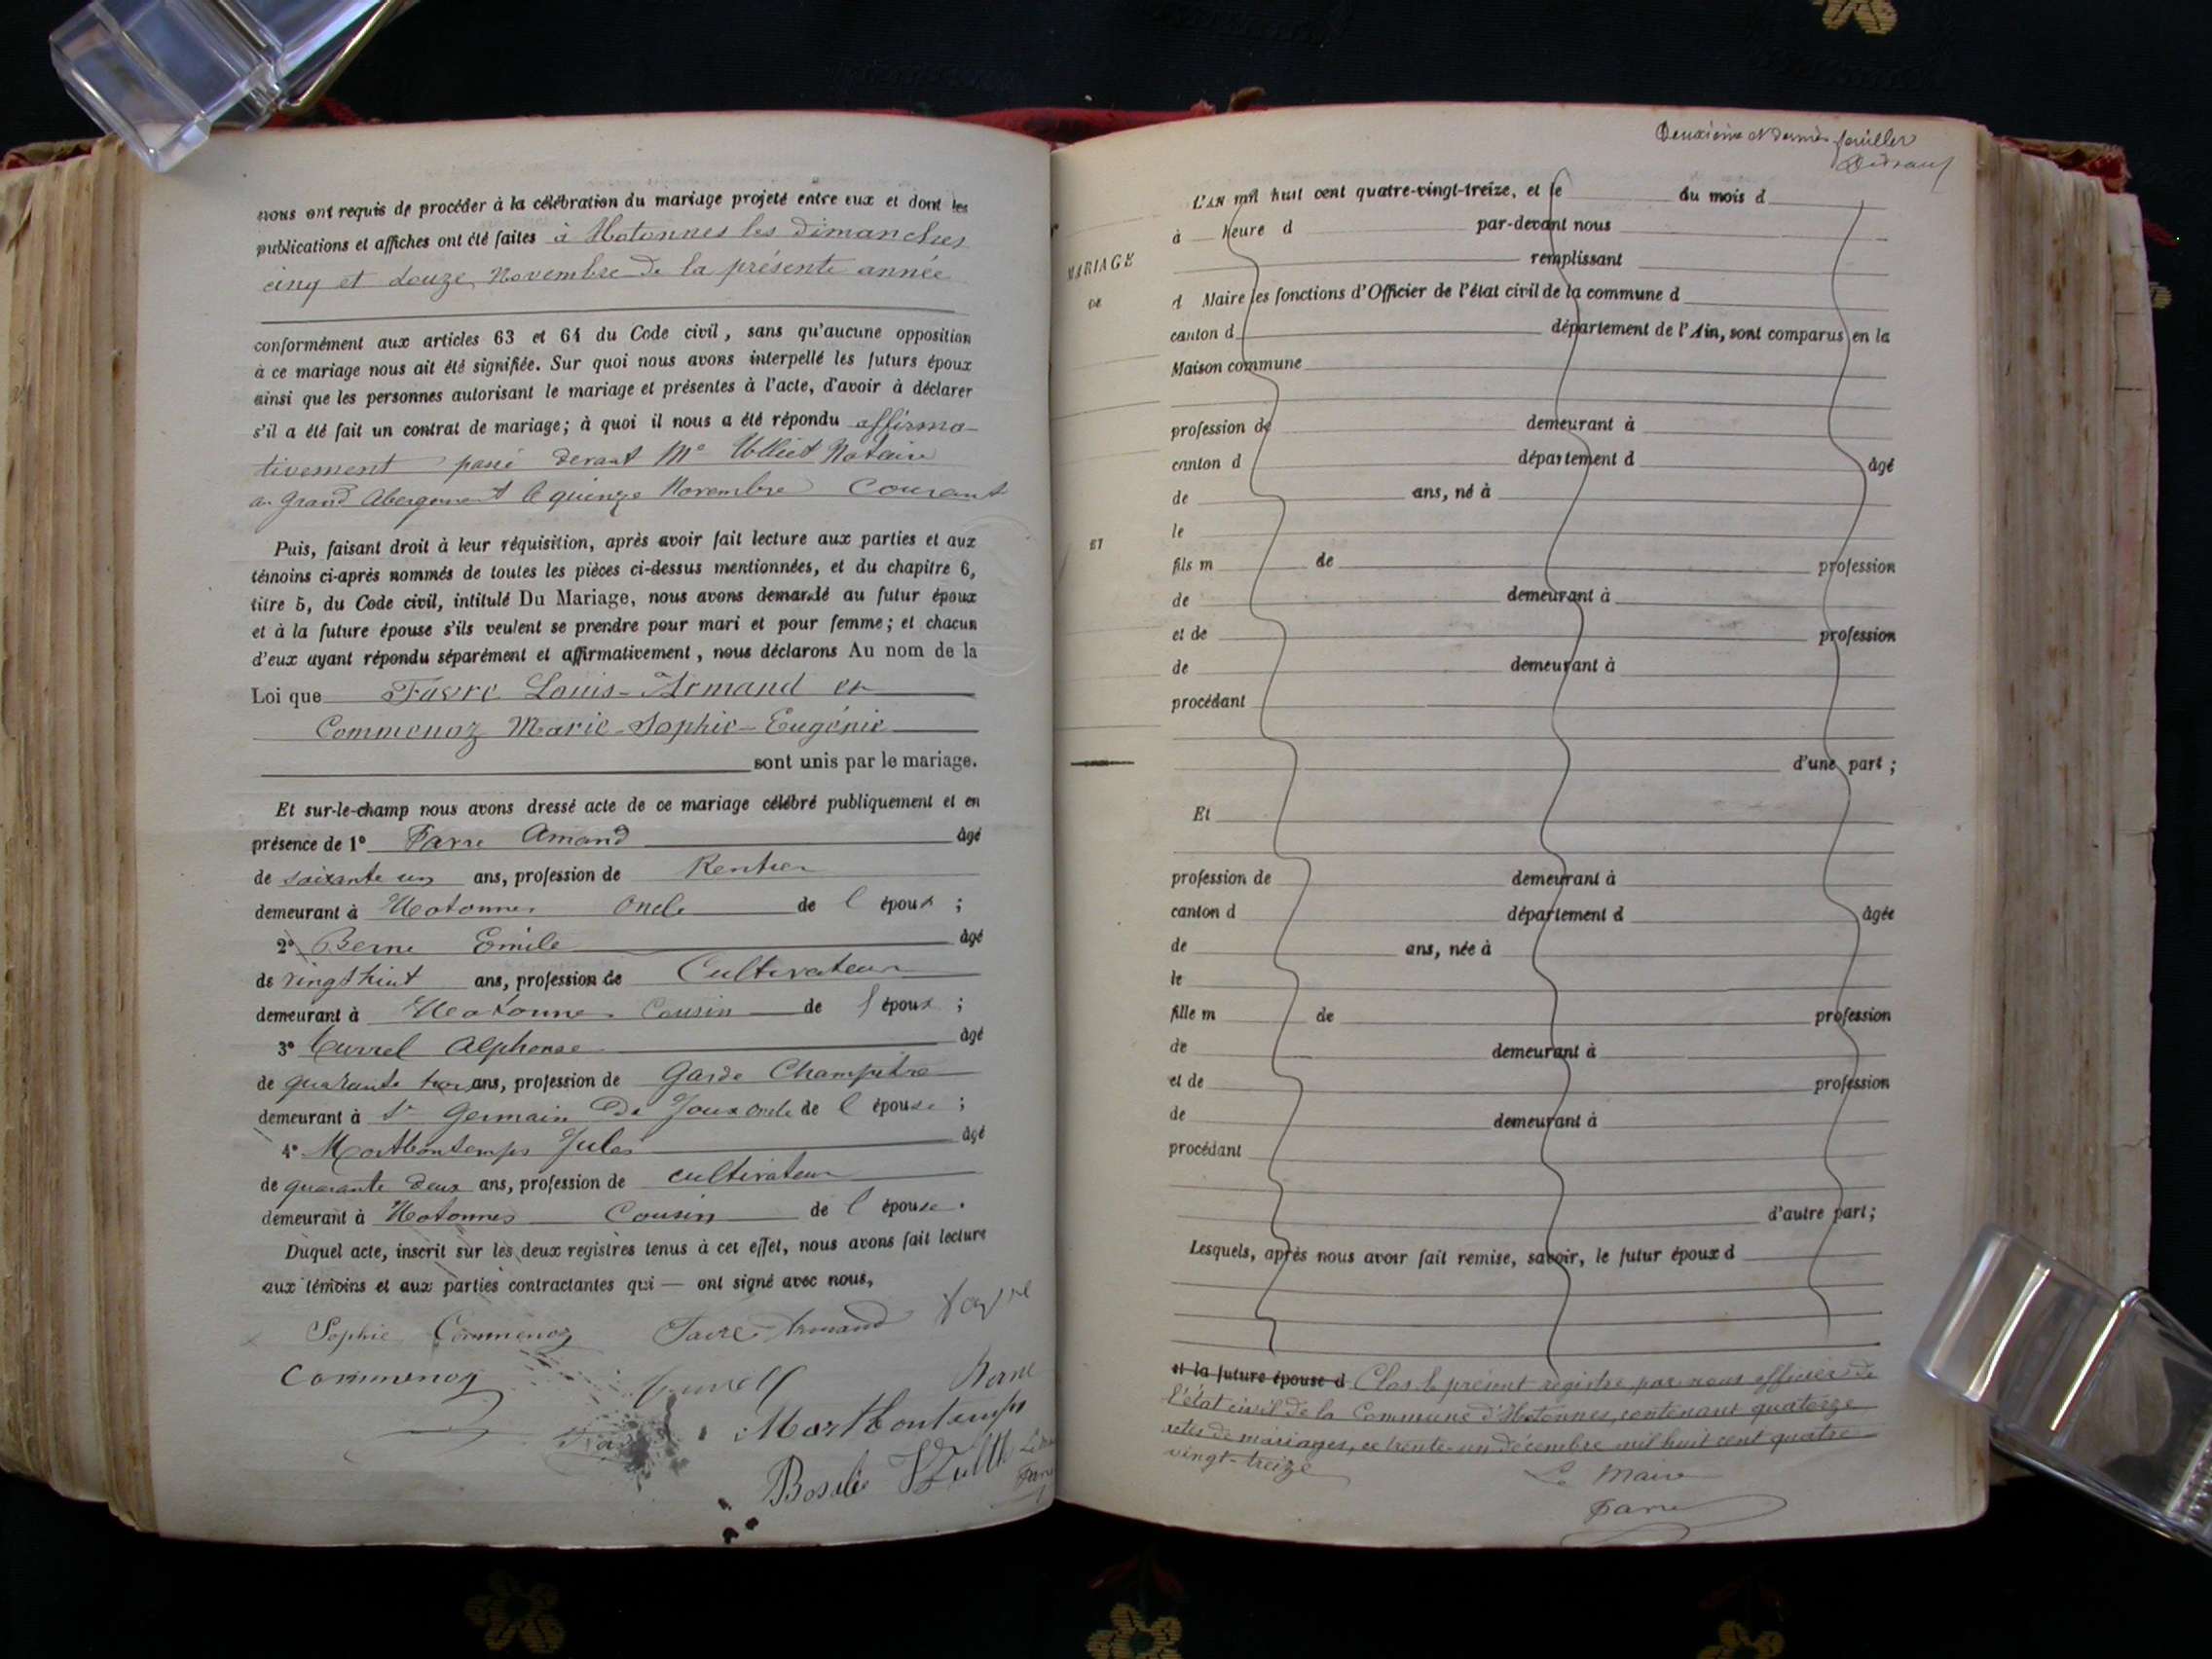 nous ont requis de procéder à la célébration du mariage projeté entre eux et dont les
publications et affiches ont été faites à Hotonnes les dimanches
cinq et douze Novembre de la présente année
conformément aux articles 63 et 64 du Code civil, sans qu'aucune opposition
à ce mariage nous ait été signifiée. Sur quoi nous avons interpellé les futurs époux
ainsi que les personnes autorisant le mariage et présentes à l'acte, d'avoir à déclarer
s'il a été fait un contrat de mariage; à quoi il nous a été répondu affirma-
tivement passé devant Me Notaire
au Grand Abergement le quinze Novembre Courant
Puis, faisant droit à leur réquisition, après avoir fait lecture aux parties et aux
témoins ci-après nommés de toutes les pièces ci-dessus mentionnées, et du chapitre 6,
titre 5, du Code civil, intitulé Du Mariage, nous avons demandé au futur époux
et à la future épouse s'ils veulent se prendre pour mari et pour femme; et chacun
d'eux ayant répondu séparément et affirmativement, nous déclarons Au nom de la
Loi que Favre Louis-Armand et
Commenoz Marie-Sophie-Eugénie
sont unis par le mariage.
Et sur-le-champ nous avons dressé acte de ce mariage célébré publiquement et en
présence de 1° Favre Amand âgé
de soixante un ans, profession de Rentier
demeurant à Hotonnes Oncle de l époux ;
2° Berne Emile âgé
de vingt huit ans, profession de Cultivateur
demeurant à Hotonnes Cousin de l époux ;
3° Alphonse âgé
de quarante trois ans, profession de Garde Champêtre
demeurant à St Germain de Joux oncle de l épouse ;
4° Montbontemps Jules âgé
de quarante deux ans, profession de cultivateur
demeurant à Hotonnes Cousin de l épouse.
Duquel acte, inscrit sur les deux registres tenus à cet effet, nous avons fait lecture
aux témoins et aux parties contractantes qui — ont signé avec nous,
Sophie Commenoz Favre Armand Favre
Commenoz Berne
Rosalie
Deuxième et dernier feuillet
MARIAGE
DE
ET
L'AN mil huit cent quatre-vingt-treize, et le du mois d
à heure d par-devant nous
remplissant
d Maire les fonctions d'Officier de l'état civil de la commune d
canton d département de l'Ain, sont comparus en la
Maison commune
profession de demeurant à
canton d département d âgé
de ans, né à
le
fils m de profession
de demeurant à
et de profession
de demeurant à
procédant
d'une part ;
Et
profession de demeurant à
canton d département d âgée
de ans, née à
le
fille m de profession
de demeurant à
et de profession
de demeurant à
procédant
d'autre part ;
Lesquels, après nous avoir fait remise, savoir, le futur époux d
et la future épouse d Clos le présent registre par nous officier de
l'état civil de la Commune d'Hotonnes, contenant quatorze
actes de mariages, ce trente-un décembre mil huit cent quatre
vingt-treize
Le Maire
Favre